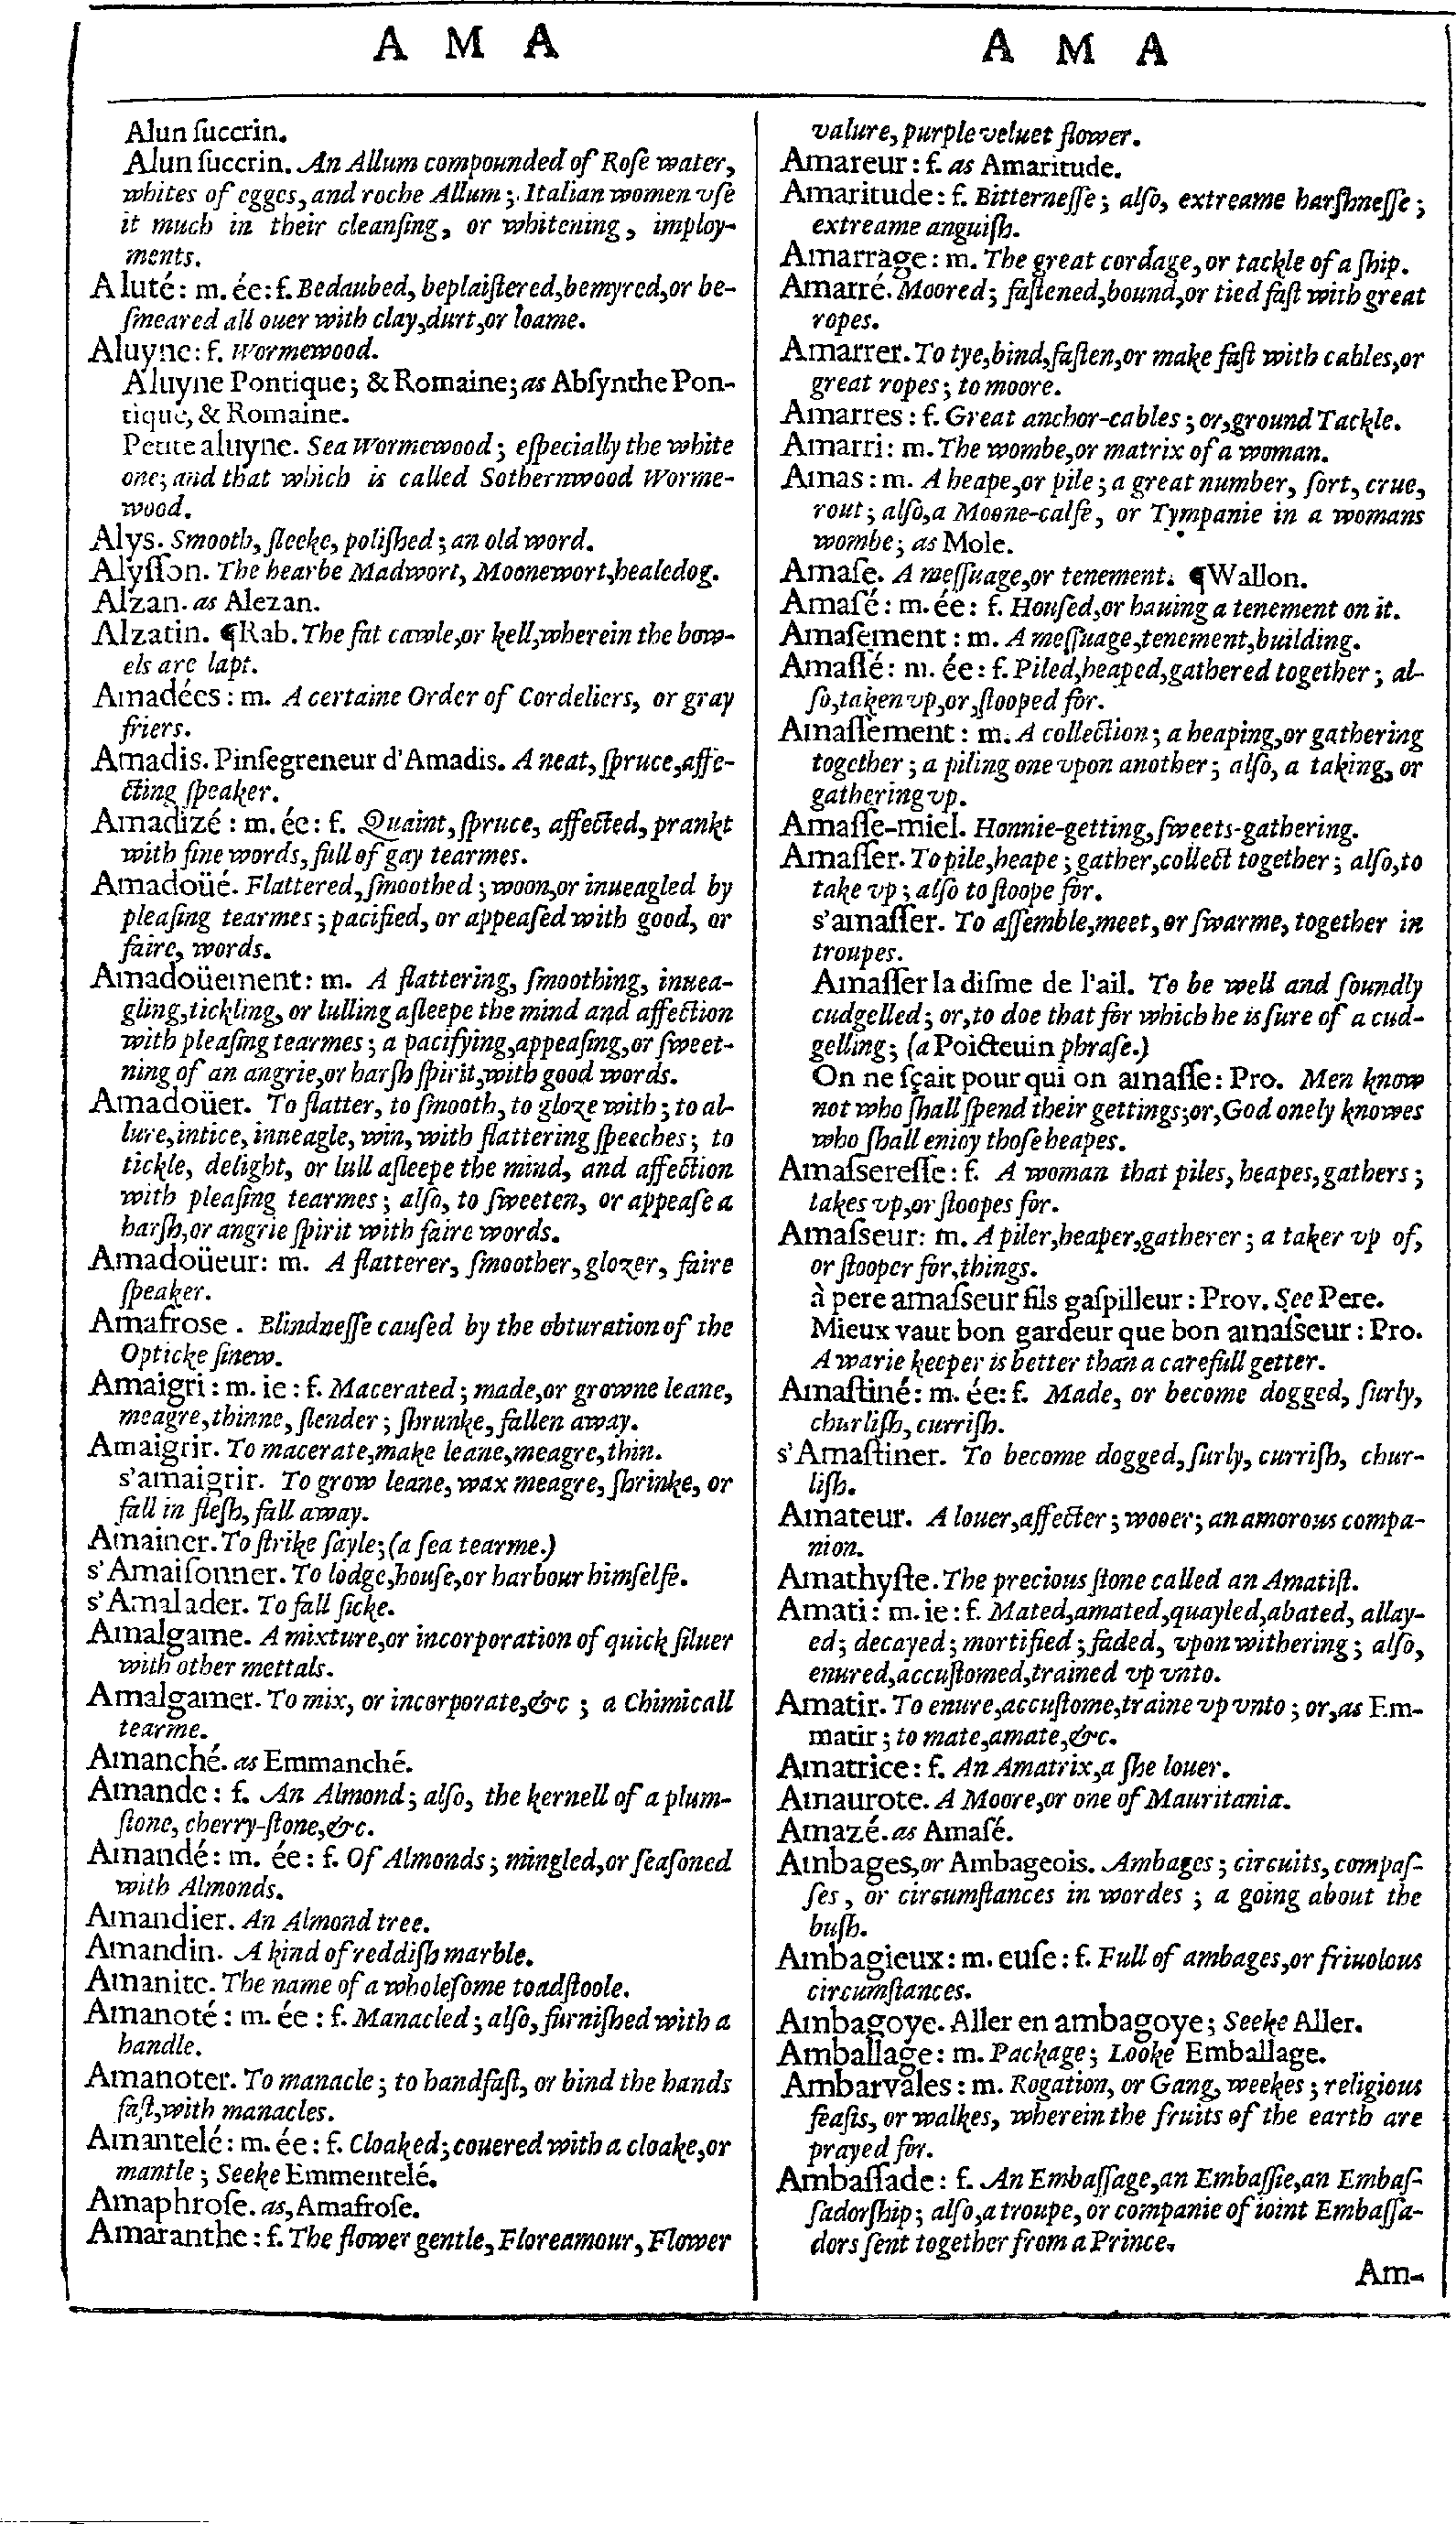 A M A
Alun ſuccrin.
Alun ſuccrin. An Allum compounded of Roſe water,
whites of egges, and roche Allum; Italian women vſe
it much in their cleanſing, or whitening, imploy-
ments.
Aluté: m. ée: f. Bedaubed, beplaiſtered, bemyred, or be-
ſmeared all ouer with clay, durt, or loame.
Aluyne: f. Wormewood.
Aluyne Pontique; & Romaine; as Abſynthe Pon-
tique, & Romaine.
Petite aluyne. Sea Wormewood; eſpecially the white
one; and that which is called Sothernwood Worme-
wood.
Alys. Smooth, ſleeke, poliſhed; an old word.
Alyſſon. The hearbe Madwort, Moonewort, healedog.
Alzan. as Alezan.
Alzatin. ¶Rab. The fat cawle, or kell, wherein the bow-
els are lapt.
Amadées: m. A certaine Order of Cordeliers, or gray
friers.
Amadis. Pinſegreneur d'Amadis. A neat, ſpruce, affe-
cting ſpeaker.
Amadizé: m. ée: f. Quaint, ſpruce, affected, prankt
with fine words, full of gay tearmes.
Amadoüé. Flattered, ſmoothed; woon, or inueagled by
pleaſing tearmes; pacified, or appeaſed with good, or
faire, words.
Amadoüement: m. A flattering, ſmoothing, inuea-
gling, tickling, or lulling aſleepe the mind and affection
with pleaſing tearmes; a pacifying, appeaſing, or ſweet-
ning of an angrie, or harſh ſpirit, with good words.
Amadoüer. To flatter, to ſmooth, to gloze with; to al-
lure, intice, inueagle, win, with flattering ſpeeches; to
tickle, delight, or lull aſleepe the mind, and affection
with pleaſing tearmes; alſo, to ſweeten, or appeaſe a
harſh, or angrie ſpirit with faire words.
Amadoüeur: m. A flatterer, ſmoother, glozer, faire
ſpeaker.
Amafroſe. Blindneſſe cauſed by the obturation of the
Opticke ſinew.
Amaigri: m. ie: f. Macerated; made, or growne leane,
meagre, thinne, ſlender; ſhrunke, fallen away.
Amaigrir. To macerate, make leane, meagre, thin.
s'amaigrir. To grow leane, wax meagre, ſhrinke, or
fall in fleſh, fall away.
Amainer. To ſtrike ſayle; (a ſea tearme.)
s'Amaiſonner. To lodge, houſe, or harbour himſelfe.
s'Amalader. To fall ſicke.
Amalgame. A mixture, or incorporation of quickſiluer
with other mettals.
Amalgamer. To mix, or incorporate, &c; a Chimicall
tearme.
Amanché. as Emmanché.
Amande: f. An Almond; alſo, the kernell of a plum-
ſtone, cherry-ſtone, &c.
Amandé: m. ée: f. Of Almonds; mingled, or ſeaſoned
with Almonds.
Amandier. An Almond tree.
Amandin. A kind of reddiſh marble.
Amanite. The name of a wholeſome toadſtoole.
Amanoté: m. ée: f. Manacled; alſo, furniſhed with a
handle.
Amanoter. To manacle; to handfaſt, or bind the hands
faſt, with manacles.
Amantelé: m. ée: f. Cloaked; couered with a cloake, or
mantle; Seeke Emmentelé.
Amaphroſe. as, Amafroſe.
Amaranthe: f. The flower gentle, Floreamour, Flower
A M A
valure, purple veluet flower.
Amareur: f. as Amaritude.
Amaritude: f. Bitterneſſe; alſo, extreame harſhneſſe;
extreame anguiſh.
Amarrage: m. The great cordage, or tackle of a ſhip.
Amarré. Moored; faſtened, bound, or tied faſt with great
ropes.
Amarrer. To tye, bind, faſten, or make faſt with cables, or
great ropes; to moore.
Amarres: f. Great anchor-cables; or, ground Tackle.
Amarri: m. The wombe, or matrix of a woman.
Amas: m. A heape, or pile; a great number, ſort, crue,
rout; alſo, a Moone-calfe, or Tympanie in a womans
wombe; as Mole.
Amaſe. A meſſuage, or tenement. ¶Wallon.
Amaſé: m. ée: f. Houſed, or hauing a tenement on it.
Amaſement: m. A meſſuage, tenement, building.
Amaſſé: m. ée: f. Piled, heaped, gathered together; al-
ſo, taken vp, or, ſtooped for.
Amaſſement: m. A collection; a heaping, or gathering
together; a piling one vpon another; alſo, a taking, or
gathering vp.
Amaſſe-miel. Honnie-getting, ſweets-gathering.
Amaſſer. To pile, heape; gather, collect together; alſo, to
take vp; alſo to ſtoope for.
s'amaſſer. To aſſemble, meet, or ſwarme, together in
troupes.
Amaſſer la diſme de l'ail. To be well and ſoundly
cudgelled; or, to doe that for which he is ſure of a cud-
gelling; (a Poicteuin phraſe.)
On ne ſçait pour qui on amaſſe: Pro. Men know
not who ſhall ſpend their gettings; or, God onely knowes
who ſhall enioy thoſe heapes.
Amaſsereſſe: f. A woman that piles, heapes, gathers;
takes vp, or ſtoopes for.
Amaſseur: m. A piler, heaper, gatherer; a taker vp of,
or ſtooper for, things.
à pere amaſseur fils gaſpilleur: Prov. See Pere.
Mieux vaut bon gardeur que bon amaſseur: Pro.
A warie keeper is better than a carefull getter.
Amaſtiné: m. ée: f. Made, or become dogged, ſurly,
churliſh, curriſh.
s'Amaſtiner. To become dogged, ſurly, curriſh, chur-
liſh.
Amateur. A louer, affecter; wooer; an amorous compa-
nion.
Amathyſte. The precious ſtone called an Amatiſt.
Amati: m. ie: f. Mated, amated, quayled, abated, allay-
ed; decayed; mortified; faded, vpon withering; alſo,
enured, accuſtomed, trained vp vnto.
Amatir. To enure, accuſtome, traine vp vnto; or, as Em-
matir; to mate, amate, &c.
Amatrice: f. An Amatrix, a ſhe louer.
Amaurote. A Moore, or one of Mauritania.
Amazé. as Amaſé.
Ambages, or Ambageois. Ambages; circuits, compaſ-
ſes, or circumſtances in wordes; a going about the
buſh.
Ambagieux: m. euſe: f. Full of ambages, or friuolous
circumſtances.
Ambagoye. Aller en ambagoye; Seeke Aller.
Amballage: m. Package; Looke Emballage.
Ambarvales: m. Rogation, or Gang, weekes; religious
feaſts, or walkes, wherein the fruits of the earth are
prayed for.
Ambaſſade: f. An Embaſſage, an Embaſſie, an Embaſ-
ſadorſhip; alſo, a troupe, or companie of ioint Embaſſa-
dors ſent together from a Prince.
Am-